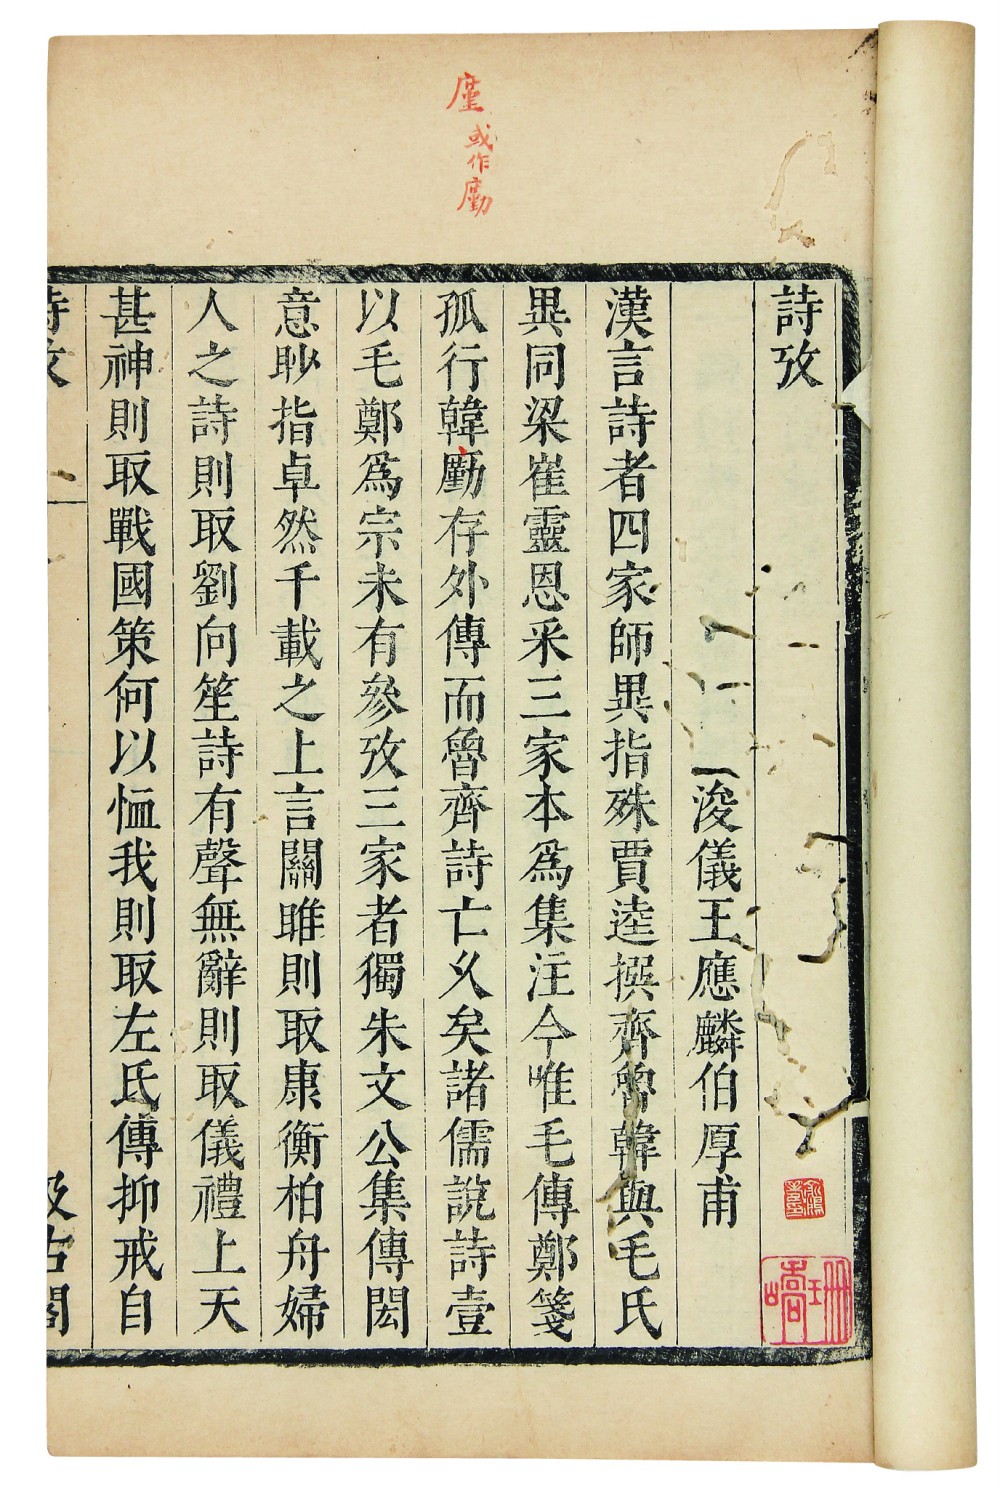 廑
或作
廑力
詩攷
浚儀王應麟伯厚甫
漢言詩者四家師異指殊賈逵撰齊魯韓與毛氏
異同梁崔靈恩采三家本爲集注今唯毛傳鄭箋
孤行韓廑存外傳而魯齊詩亡乆矣諸儒說詩壹
以毛鄭爲宗未有參攷三家者獨朱文公集傳閎
意眇指卓然千載之上言關雎則取康衡柏舟婦
人之詩則取劉向笙詩有聲無辭則取儀禮上天
甚神則取戰國策何以恤我則取左氏傳抑戒自
詩攷
汲古閣